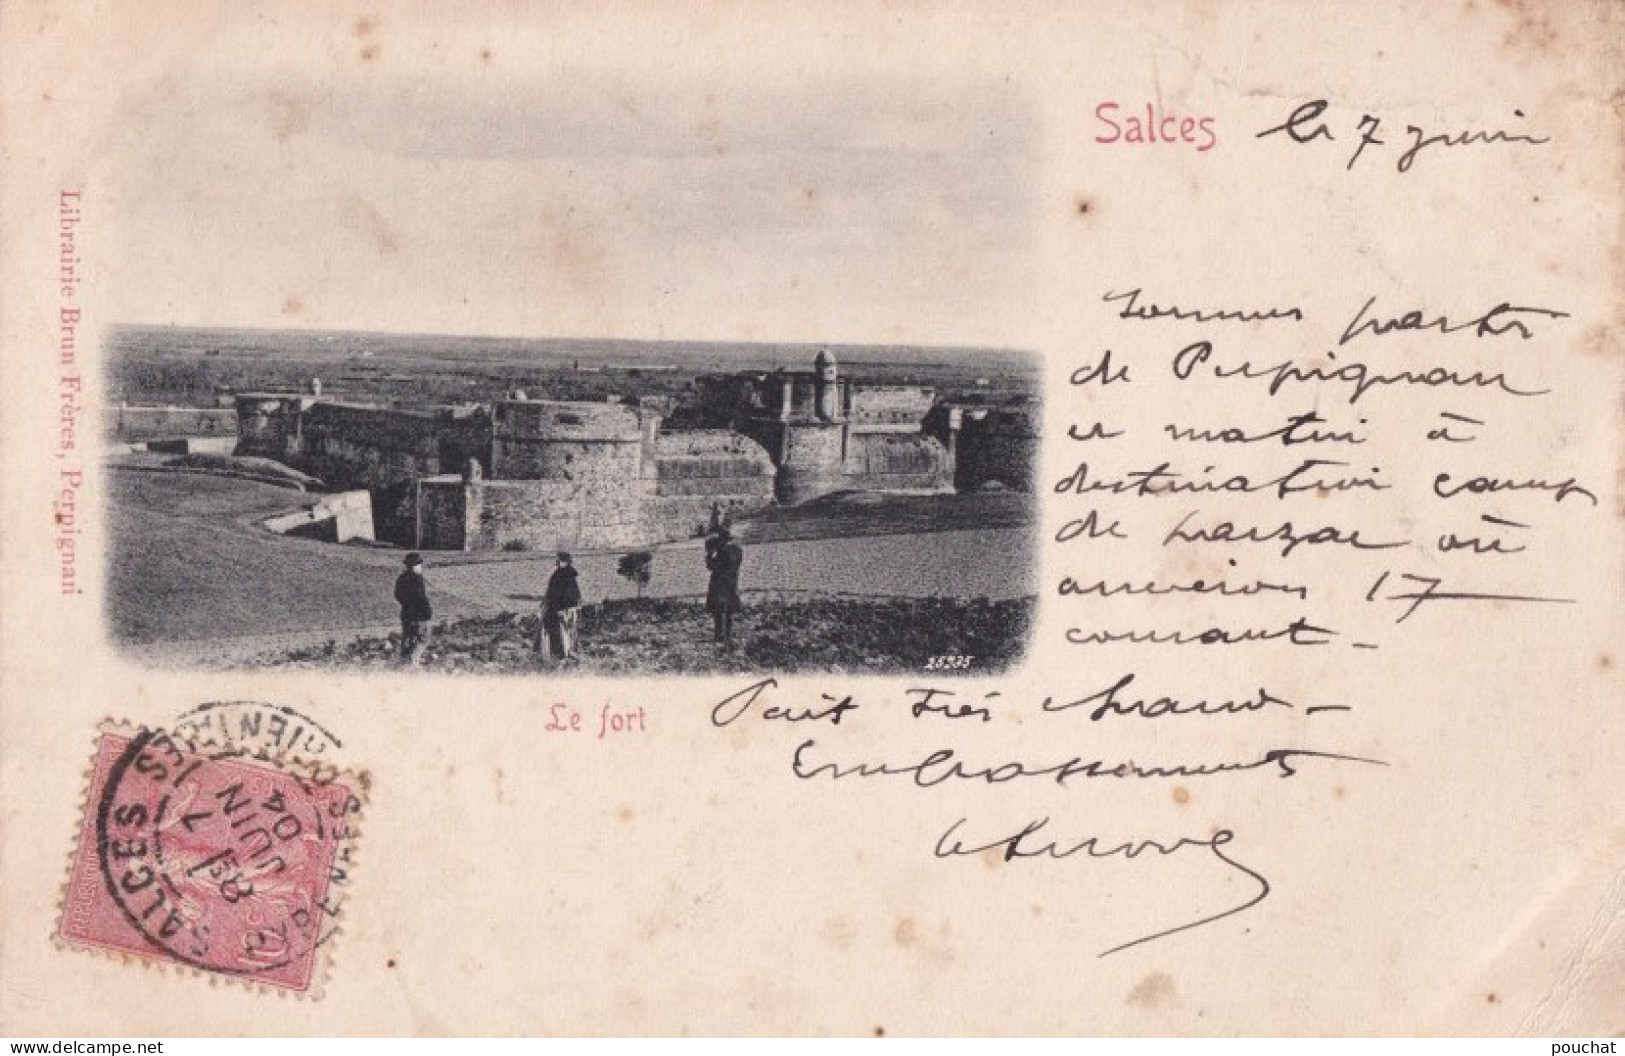 Salces le 7 juin
Librairie Brun Frères, Perpignan
sommes partis
de Perpignan
ce matin à
destination camp
de Larzac où
arriverons 17
courant _
25235
Le fort
Fait très chaud _
Embrassements
SALCES
PYRENEES ORIENTALES
7
JUIN
04
10
Delcampe.net
pouchat